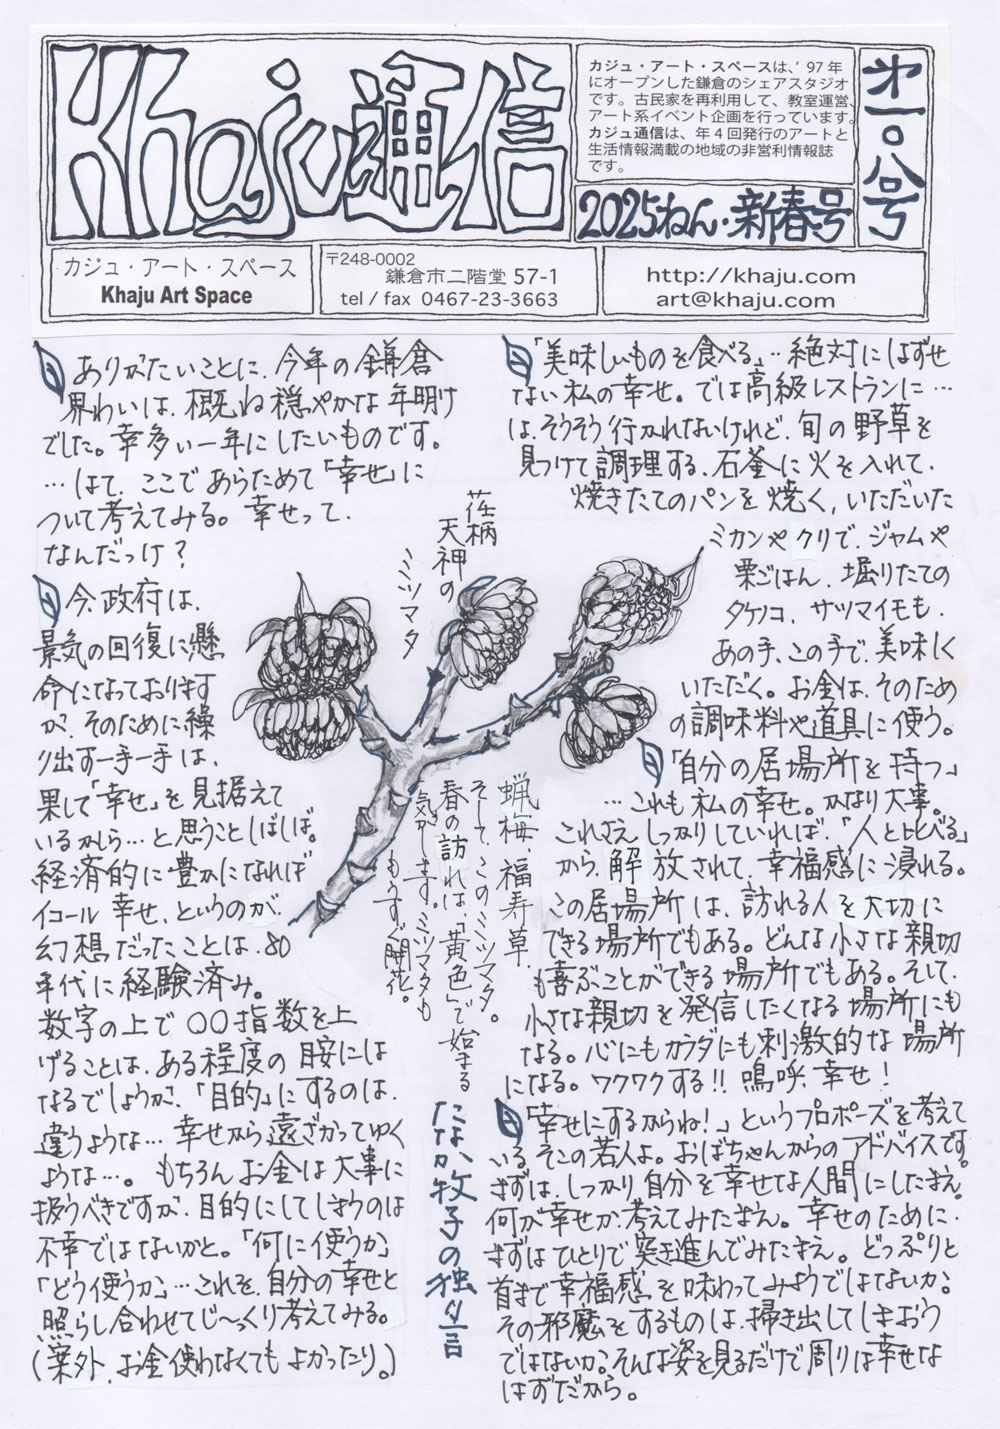 Khaju通信
カジュ・アート・スペースは、'97年
にオープンした鎌倉のシェアスタジオ
です。古民家を再利用して、教室運営、
アート系イベント企画を行っています。
カジュ通信は、年4回発行のアートと
生活情報満載の地域の非営利情報誌
です。
2025ねん・新春号
第一〇八号
カジュ・アート・スペース
Khaju Art Space
〒248-0002
鎌倉市二階堂 57-1
tel / fax 0467-23-3663
http://khaju.com
art@khaju.com
ありがたいことに、今年の鎌倉
界わいは、概ね穏やかな年明け
でした。幸多い一年にしたいものです。
…はて、ここであらためて「幸せ」に
ついて考えてみる。幸せって、
なんだっけ？
今、政府は、
景気の回復に懸
命になっております
が、そのために繰
り出す一手一手は、
果して「幸せ」を見据えて
いるかしら…と思うことしばしば。
経済的に豊かになれば
イコール幸せ、というのが
幻想だったことは、80
年代に経験済み。
数字の上で〇〇指数を上
げることは、ある程度の目安には
なるでしょうが、「目的」にするのは、
違うような…幸せから遠ざかってゆく
ような…。もちろんお金は大事に
扱うべきですが、目的にしてしまうのは
不幸ではないかと。「何に使うか」
「どう使うか」…これを、自分の幸せと
照らし合わせてじ〜っくり考えてみる。
(案外、お金使わなくてもよかったり。)
荏柄
天神の
ミツマタ
蝋梅、福寿草、
そして、このミツマタ。
春の訪れは、「黄色」で始まる
気がします。ミツマタも
もうすぐ開花。
たなか牧子の独り言
「美味しいものを食べる」…絶対にはずせ
ない私の幸せ。では高級レストランに…
は、そうそう行かれないけれど、旬の野草を
見つけて調理する、石釜に火を入れて、
焼きたてのパンを焼く、いただいた
ミカンやクリで、ジャムや
栗ごはん、堀りたての
タケノコ、サツマイモも、
あの手、この手で、美味しく
いただく。お金は、そのため
の調味料や道具に使う。
「自分の居場所を持つ」
…これも私の幸せ。かなり大事。
これさえしっかりしていれば、「人と比べる」
から、解放されて、幸福感に浸れる。
この居場所は、訪れる人を大切に
できる場所でもある。どんな小さな親切
も喜ぶことができる場所でもある。そして、
小さな親切を発信したくなる場所にも
なる。心にもカラダにも刺激的な場所
になる。ワクワクする!!嗚呼、幸せ！
「幸せにするからね！」というプロポーズを考えて
いる、そこの若人よ。おばちゃんからのアドバイスです。
まずは、しっかり自分を幸せな人間にしたまえ。
何が幸せか、考えてみたまえ。幸せのために、
まずはひとりで突き進んでみたまえ。どっぷりと
首まで幸福感を味わってみようではないか。
その邪魔をするものは、掃き出してしまおう
ではないか。そんな姿を見るだけで周りは幸せな
はずだから。